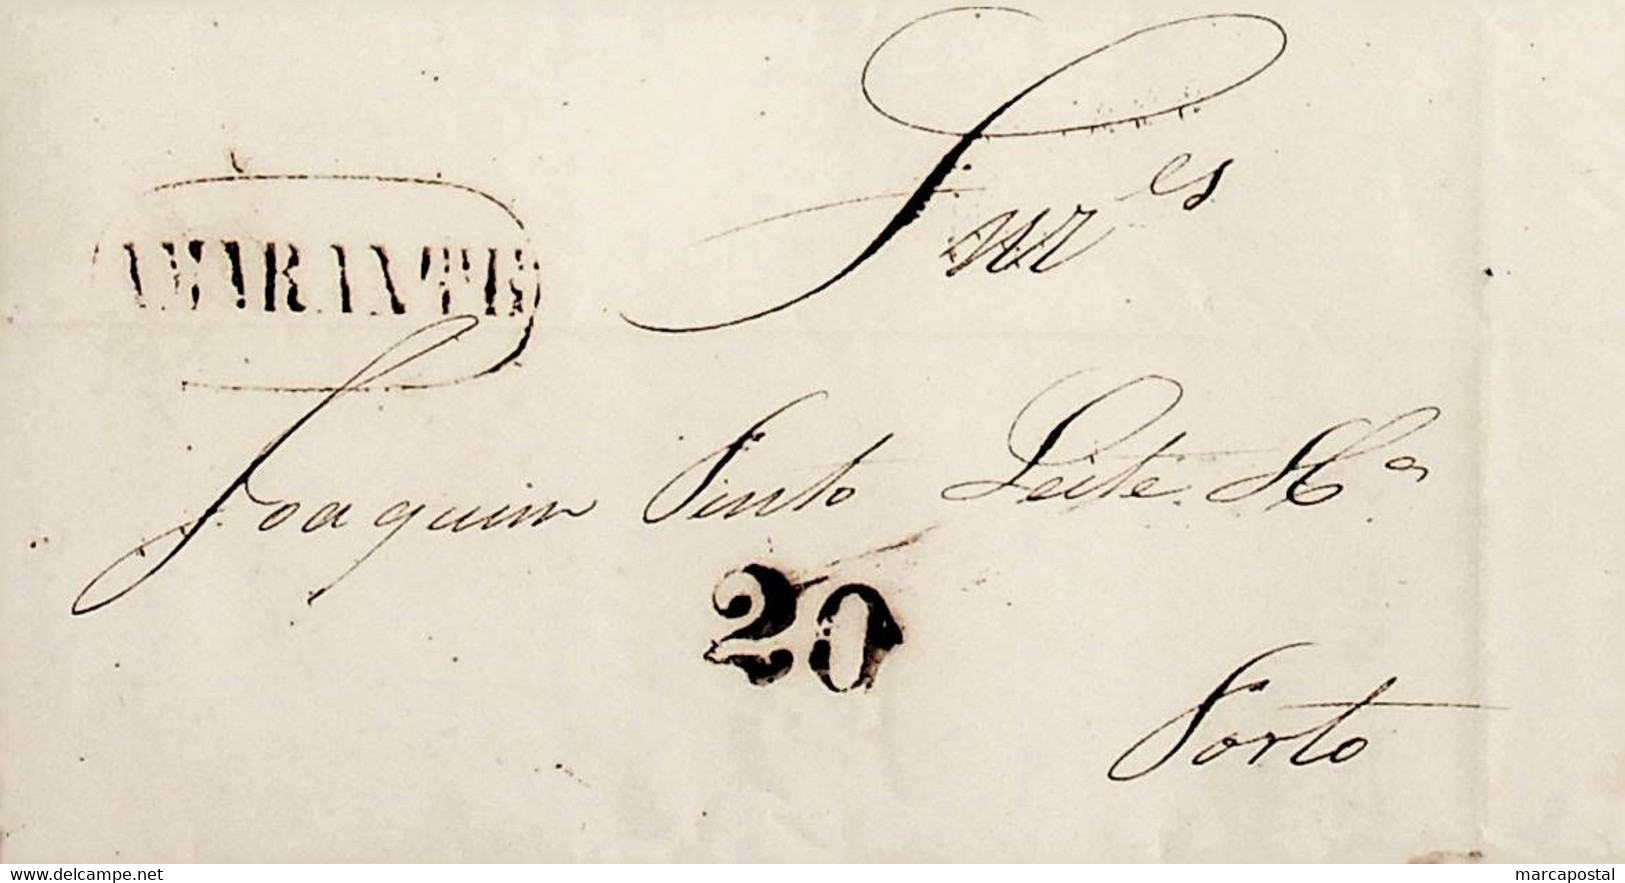 AMARANTE
Snr.es
Joaquim Pinto Leite & C.ª
20
Porto
delcampe.net
marcapostal